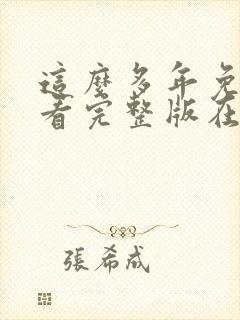 這麼多年免
看完整版在
張希成